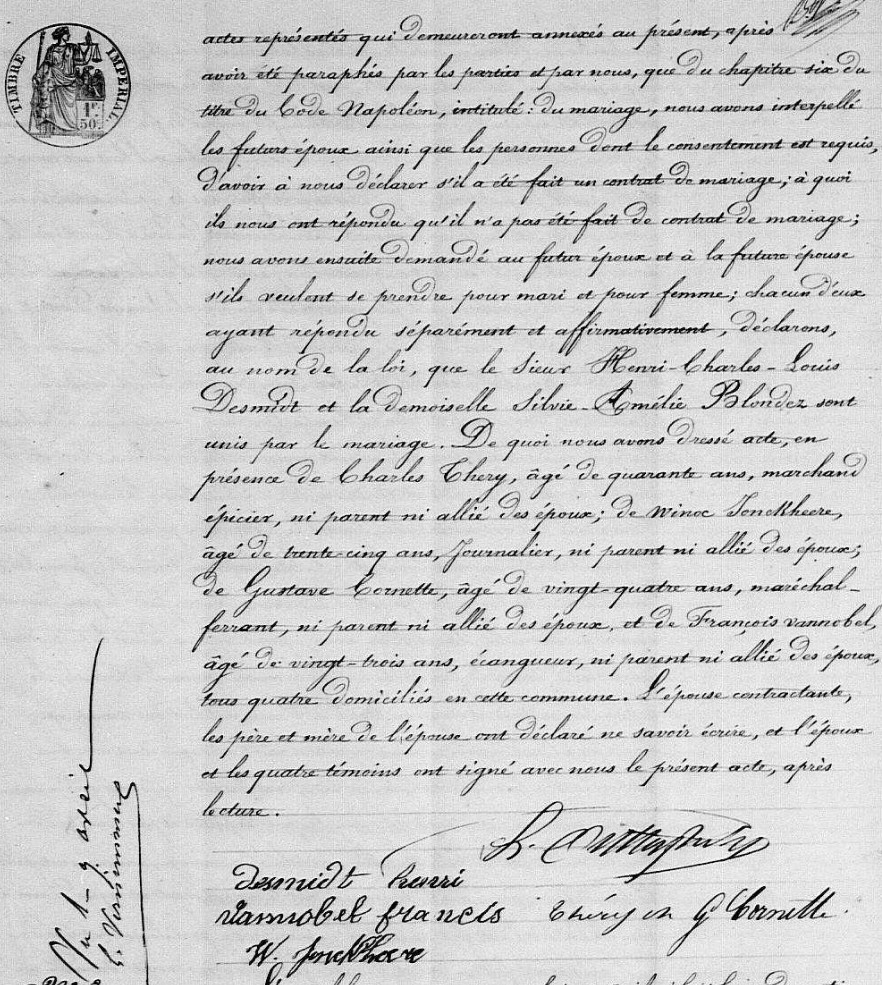 TIMBRE IMPERIAL
1F
50C
actes représentés qui demeureront annexés au présent, après
avoir été paraphés par les parties et par nous, que du chapitre six du
titre du Code Napoléon, intitulé : du mariage, nous avons interpellé
les futurs époux ainsi que les personnes dont le consentement est requis,
d'avoir à nous déclarer s'il a été fait un contrat de mariage ; à quoi
ils nous ont répondu qu'il n'a pas été fait de contrat de mariage ;
nous avons ensuite demandé au futur époux et à la future épouse
s'ils veulent se prendre pour mari et pour femme ; chacun d'eux
ayant répondu séparément et affirmativement, déclarons,
au nom de la loi, que le sieur Henri-Charles-Louis
Desmidt et la demoiselle Silvie-Amélie Blondez sont
unis par le mariage. De quoi nous avons dressé acte, en
présence de Charles Thery, âgé de quarante ans, marchand
épicier, ni parent ni allié des époux ; de Winoc Jonckheere,
âgé de trente-cinq ans, Journalier, ni parent ni allié des époux ;
de Gustave Cornette, âgé de vingt-quatre ans, maréchal-
ferrant, ni parent ni allié des époux, et de François vannobel,
âgé de vingt-trois ans, écangueur, ni parent ni allié des époux,
tous quatre domiciliés en cette commune. L'épouse contractante,
les père et mère de l'épouse ont déclaré ne savoir écrire, et l'époux
et les quatre témoins ont signé avec nous le présent acte, après
lecture.
desmidt henri
Vannobel francis Théry ch G Cornette.
W. Jonckheere